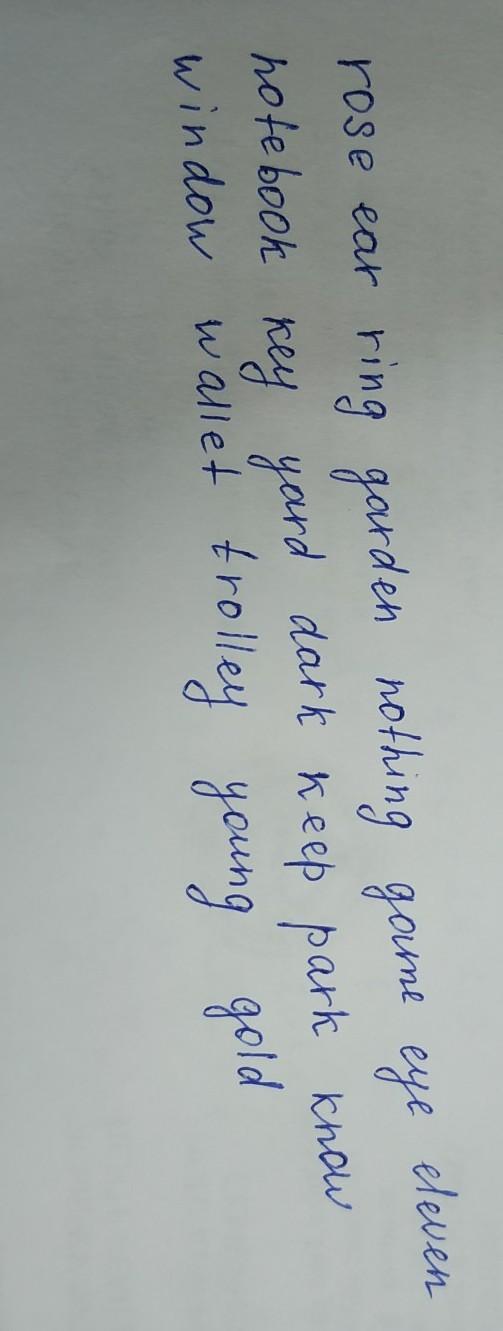 rose ear ring garden nothing game eye eleven
notebook key yard dark keep park know
window wallet trolley young gold